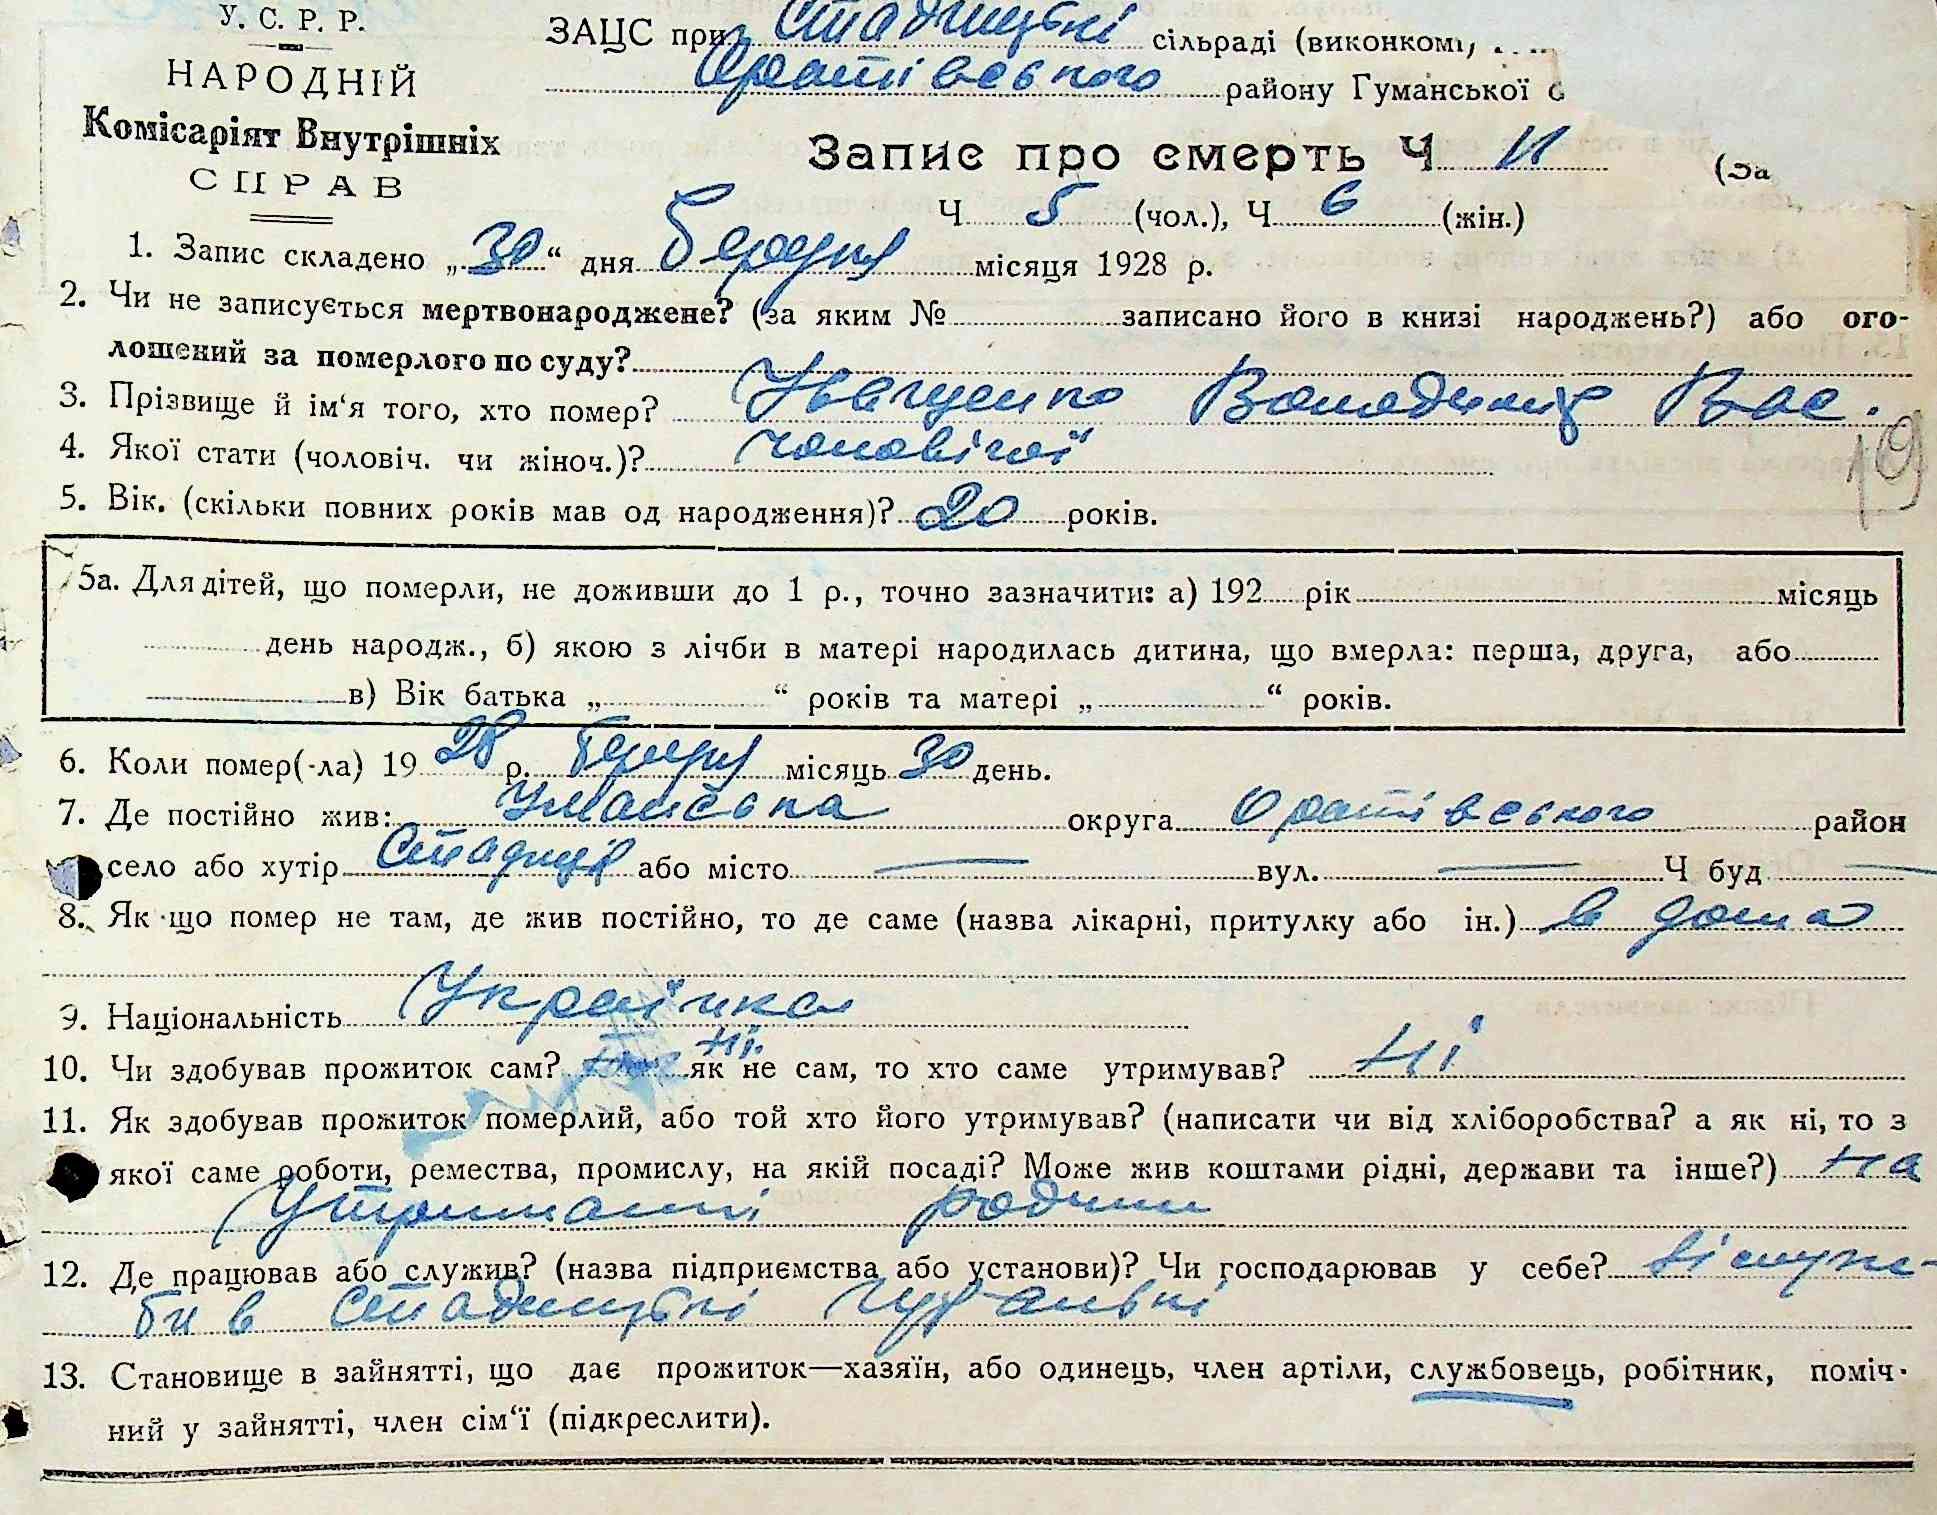 У. С. Р. Р.
НАРОДНІЙ
Комісаріят Внутрішніх
СПРАВ
ЗАЦС при Стадницькі сільраді (виконкомі,
Оратівського району Гуманської
Запис про смерть Ч 11 (За
Ч 5 (чол.), Ч 6 (жін.)
1. Запис складено „30“ дня Березня місяця 1928 р.
2. Чи не записується мертвонароджене? (за яким № записано його в книзі народжень?) або ого-
лошений за померлого по суду?
3. Прізвище й ім‘я того, хто помер? Іващенко Володимир Вас.
4. Якої стати (чоловіч. чи жіноч.)? чоловічої
5. Вік. (скільки повних років мав од народження)? 20 років.
19
5а. Для дітей, що померли, не доживши до 1 р., точно зазначити: а) 192 рік місяць
день народж., б) якою з лічби в матері народилась дитина, що вмерла: перша, друга, або
в) Вік батька „ “ років та матері „ “ років.
6. Коли помер(-ла) 19 28 р. березня місяць 30 день.
7. Де постійно жив: Уманська округа Оратівського район
село або хутір Стадниця або місто — вул. — Ч буд —
8. Як що помер не там, де жив постійно, то де саме (назва лікарні, притулку або ін.) в дома
9. Національність Українка
10. Чи здобував прожиток сам? ні. як не сам, то хто саме утримував? ні
11. Як здобував прожиток померлий, або той хто його утримував? (написати чи від хліборобства? а як ні, то з
якої саме роботи, ремества, промислу, на якій посаді? Може жив коштами рідні, держави та інше?) на
утриманні родини
12. Де працював або служив? (назва підприємства або установи)? Чи господарював у себе?
би в Стадницькі
13. Становище в зайнятті, що дає прожиток—хазяїн, або одинець, член артіли, службовець, робітник, поміч-
ний у зайнятті, член сім‘ї (підкреслити).